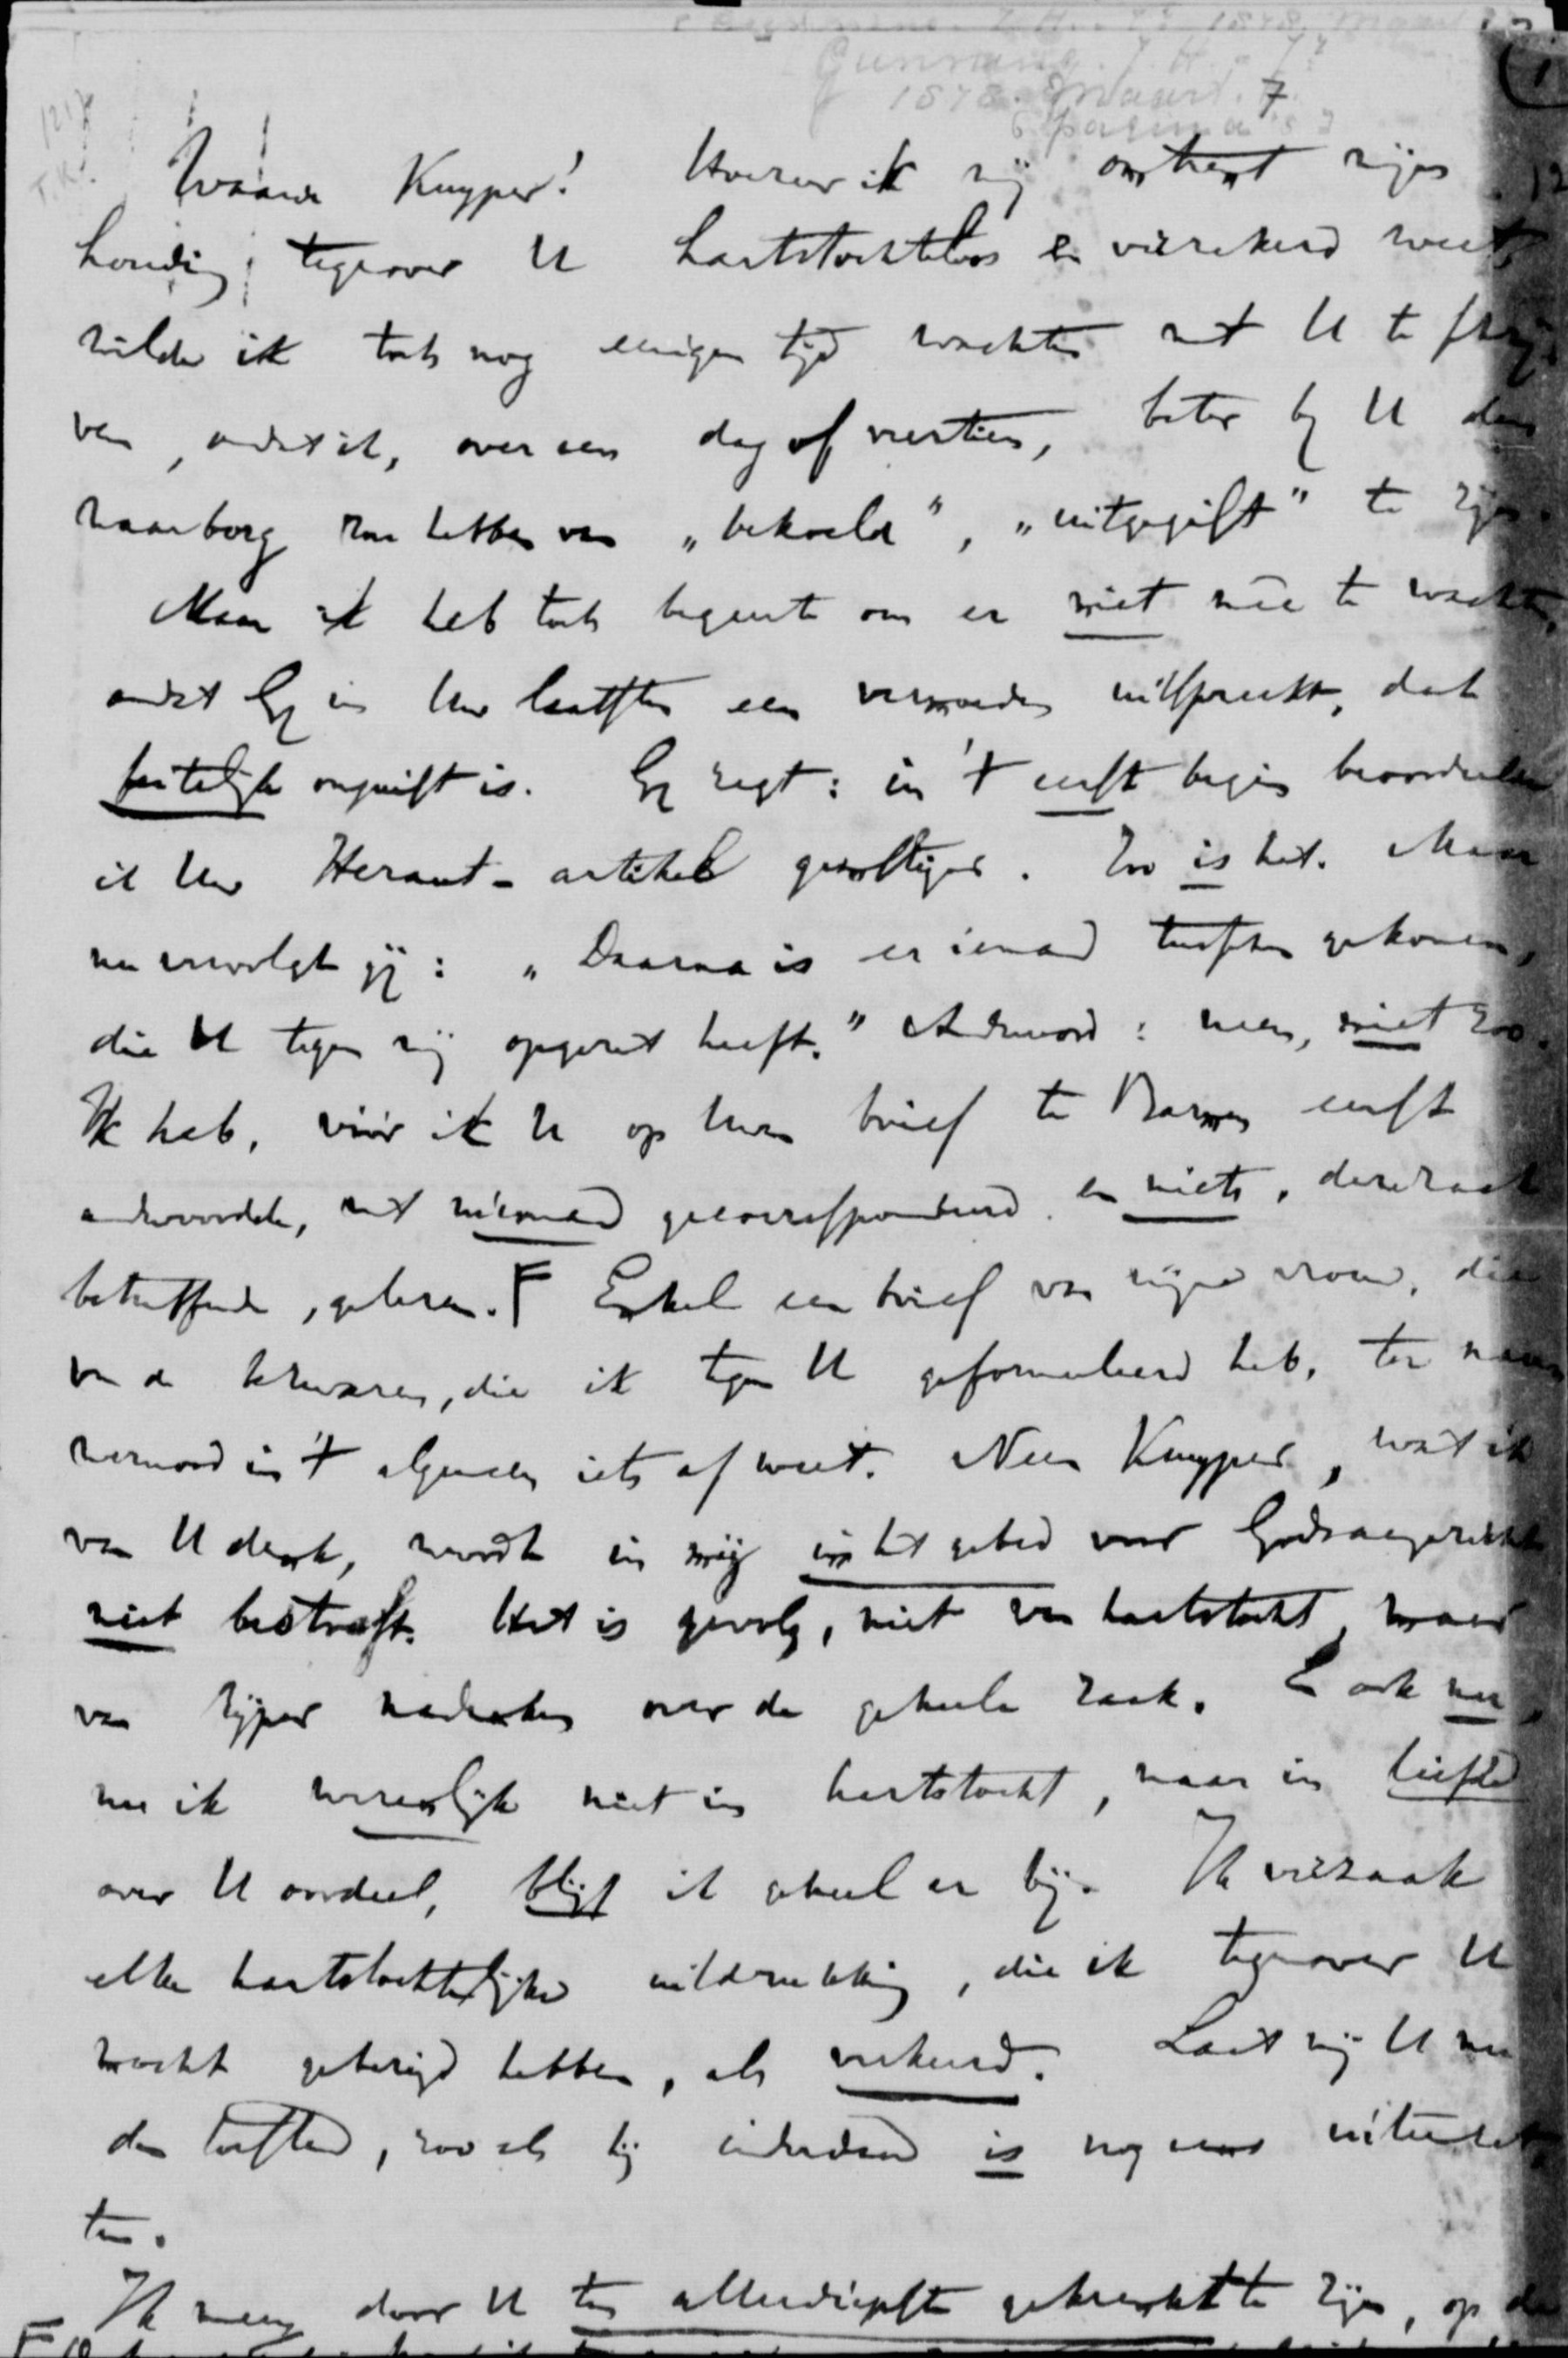 Gunning. J. H. Jr
1878. Maart. 7.
6 pagina's
Waarde Kuyper! Hoezeer ik mij omtrent mijne
houding tegenover U hartstochteloos en verzekerd weet,
wilde ik toch nog eenigen tijd wachten met U te schrij
ven, omdat ik, over een dag of veertien, beter bij U den
waarborg zou hebben van „bekoeld", „uitgegist" te zijn.
Maar ik heb toch begeerte om er niet mêe te wachten,
omdat Gij in Uw laatsten een vermoeden uitspreekt, dat
feitelijk onjuist is. Gij zegt: in 't eerst begin beoordeelde
ik Uw Heraut-artikel gunstiger. Zoo is het. Maar
nu vervolgt gij: „Daarna is er iemand tusschen gekomen,
die U tegen mij opgezet heeft." Andwoord: neen, niet zoo.
Ik heb, vóór ik U op Uwen brief te Barmen eerst
andwoordde, met niemand gecorrespondeerd en niets, deze zaak
betreffende, gelezen. F Enkel een brief van mijne vrouw, die
van de bezwaren, die ik tegen U geformuleerd heb, ter nauwer
nood in 't algemeen iets af weet. Neen Kuyper, wat ik
van U denk, wordt in mij in het gebed voor Gods aangezicht
niet bestraft. Het is gevolg, niet van hartstocht, maar
van rijper nadenken over de geheele zaak. En ook nu,
nu ik wezenlijk niet in hartstocht, maar in liefde
over U oordeel, blijf ik geheel er bij. Ik verzaak
elke hartstochtelijke uitdrukking, die ik tegenover U
mocht gebezigd hebben, als verkeerd. Laat mij U nu
den toestand, zoo als hij inderdaad is nog eens uiteenzet
ten.
Ik meen door U ten allerdiepste gekrenkt te zijn, op de